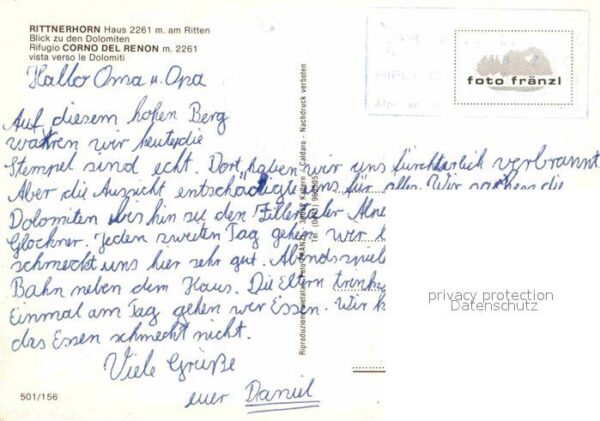 RITTNERHORN Haus 2261 m. am Ritten
Blick zu den Dolomiten
Rifugio CORNO DEL RENON m. 2261
vista verso le Dolomiti
foto fränzl
Hallo Oma u. Opa
Auf diesem hohen Berg
wahren wir heute, die
Stempel sind echt. Dort haben wir uns fürchterlich verbrannt
Aber die Aussicht entschädigte uns für alles. Wir sahen die
Dolomiten bis hin zu den Zillertaler Alpen
Glockner. Jeden zweiten Tag gehen wir
schmeckt uns hier sehr gut. Abends
Bahn neben dem Haus. Die Eltern trinken
Einmal am Tag gehen wir Essen. Wir
das Essen schmeckt nicht.
Viele Grüße
euer Daniel
501/156
Nachdruck verboten
privacy protection
Datenschutz